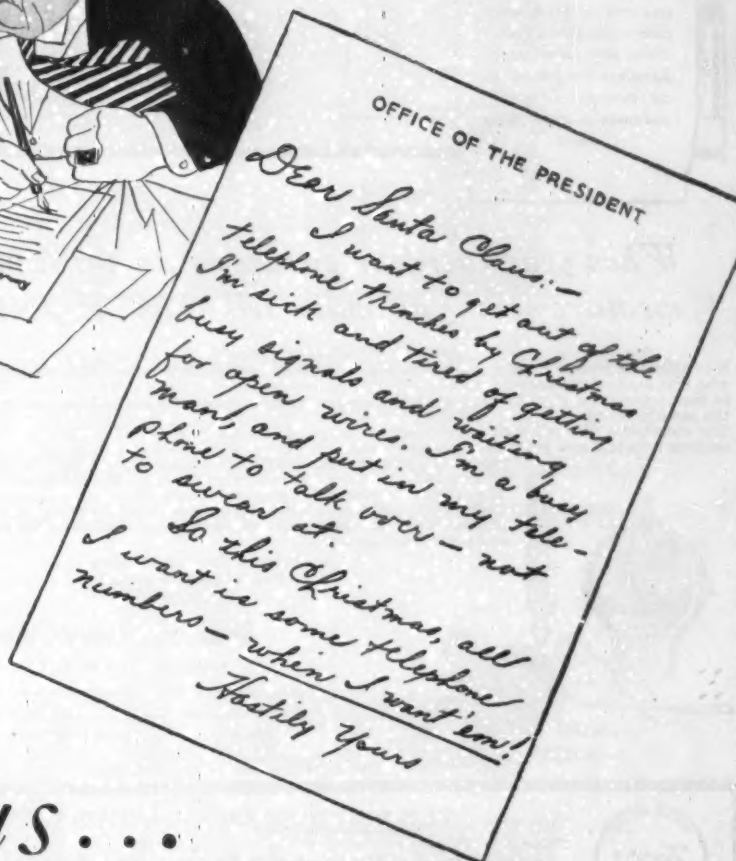 OFFICE OF THE PRESIDENT
Dear Santa Claus:—
I want to get out of the
telephone trenches by Christmas
I'm sick and tired of getting
busy signals and waiting
for open wires. I'm a busy
man, and put in my tele-
phone to talk over — not
to swear at.
So this Christmas, all
I want is some telephone
numbers — when I want 'em!
Hastily Yours
us...